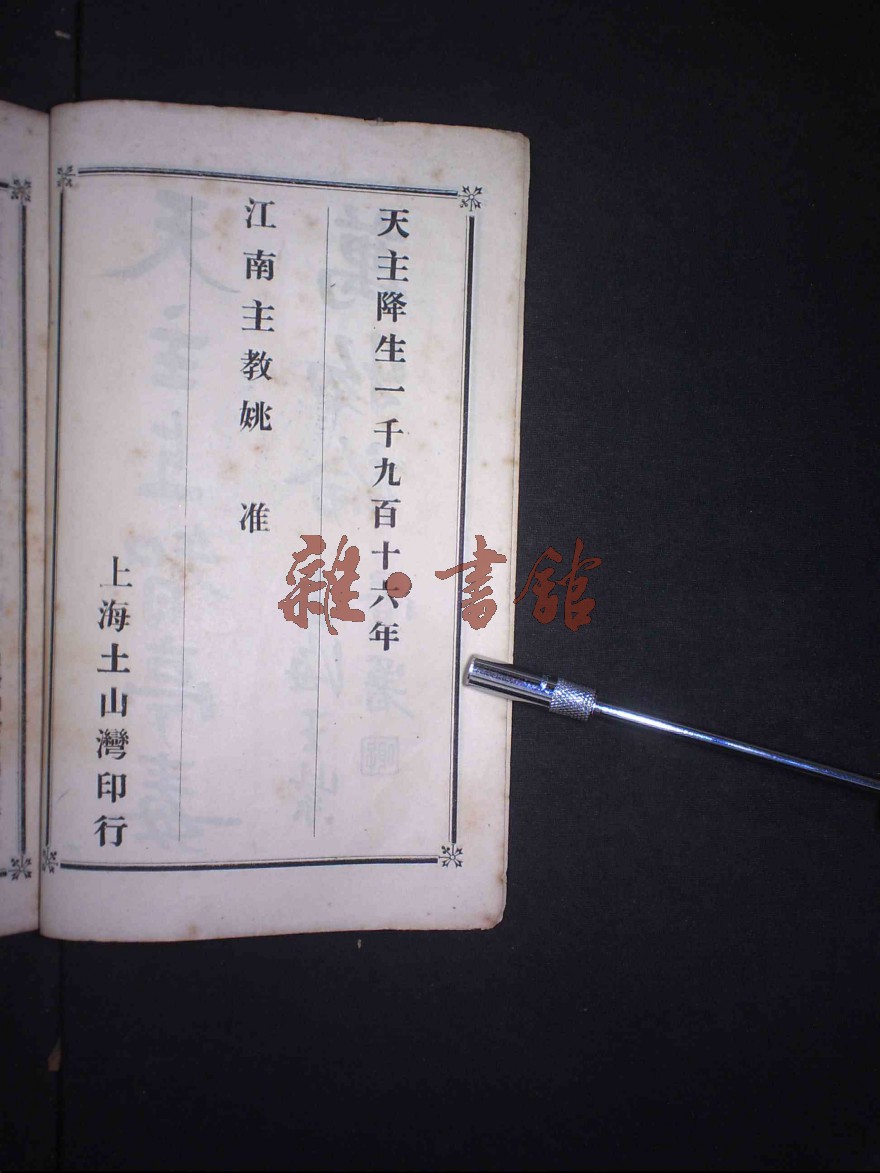 天主降生一千九百十六年
江南主教姚 准
上海土山灣印行
雜·書館